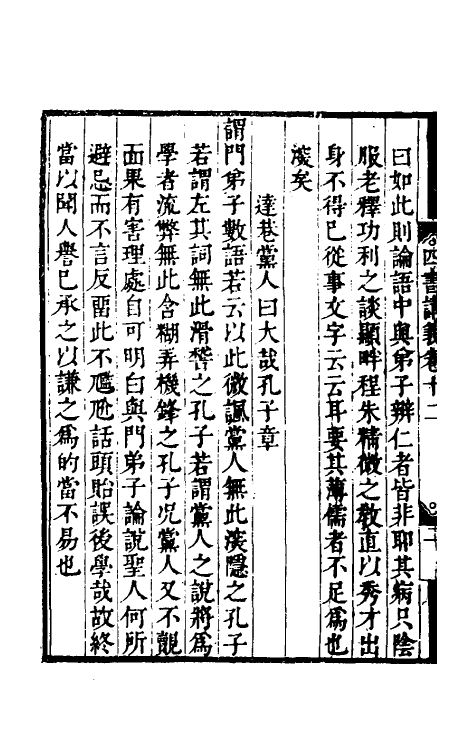 四書講義卷十二
曰如此則論語中與弟子辨仁者皆非耶其病只陰
服老釋功利之談顯畔程朱精微之教直以秀才出
身不得已從事文字云云耳要其薄儒者不足為也
淺矣
達巷黨人曰大哉孔子章
謂門弟子數語若云以此微諷黨人無此淺隱之孔子
若謂左其詞無此滑稽之孔子若謂黨人之說將為
學者流弊無此含糊弄機鋒之孔子况黨人又不覿
面果有害理處自可明白與門弟子論說聖人何所
避忌而不言反畱此不尷尬話頭貽誤後學哉故終
當以聞人譽已承之以謙之為的當不易也